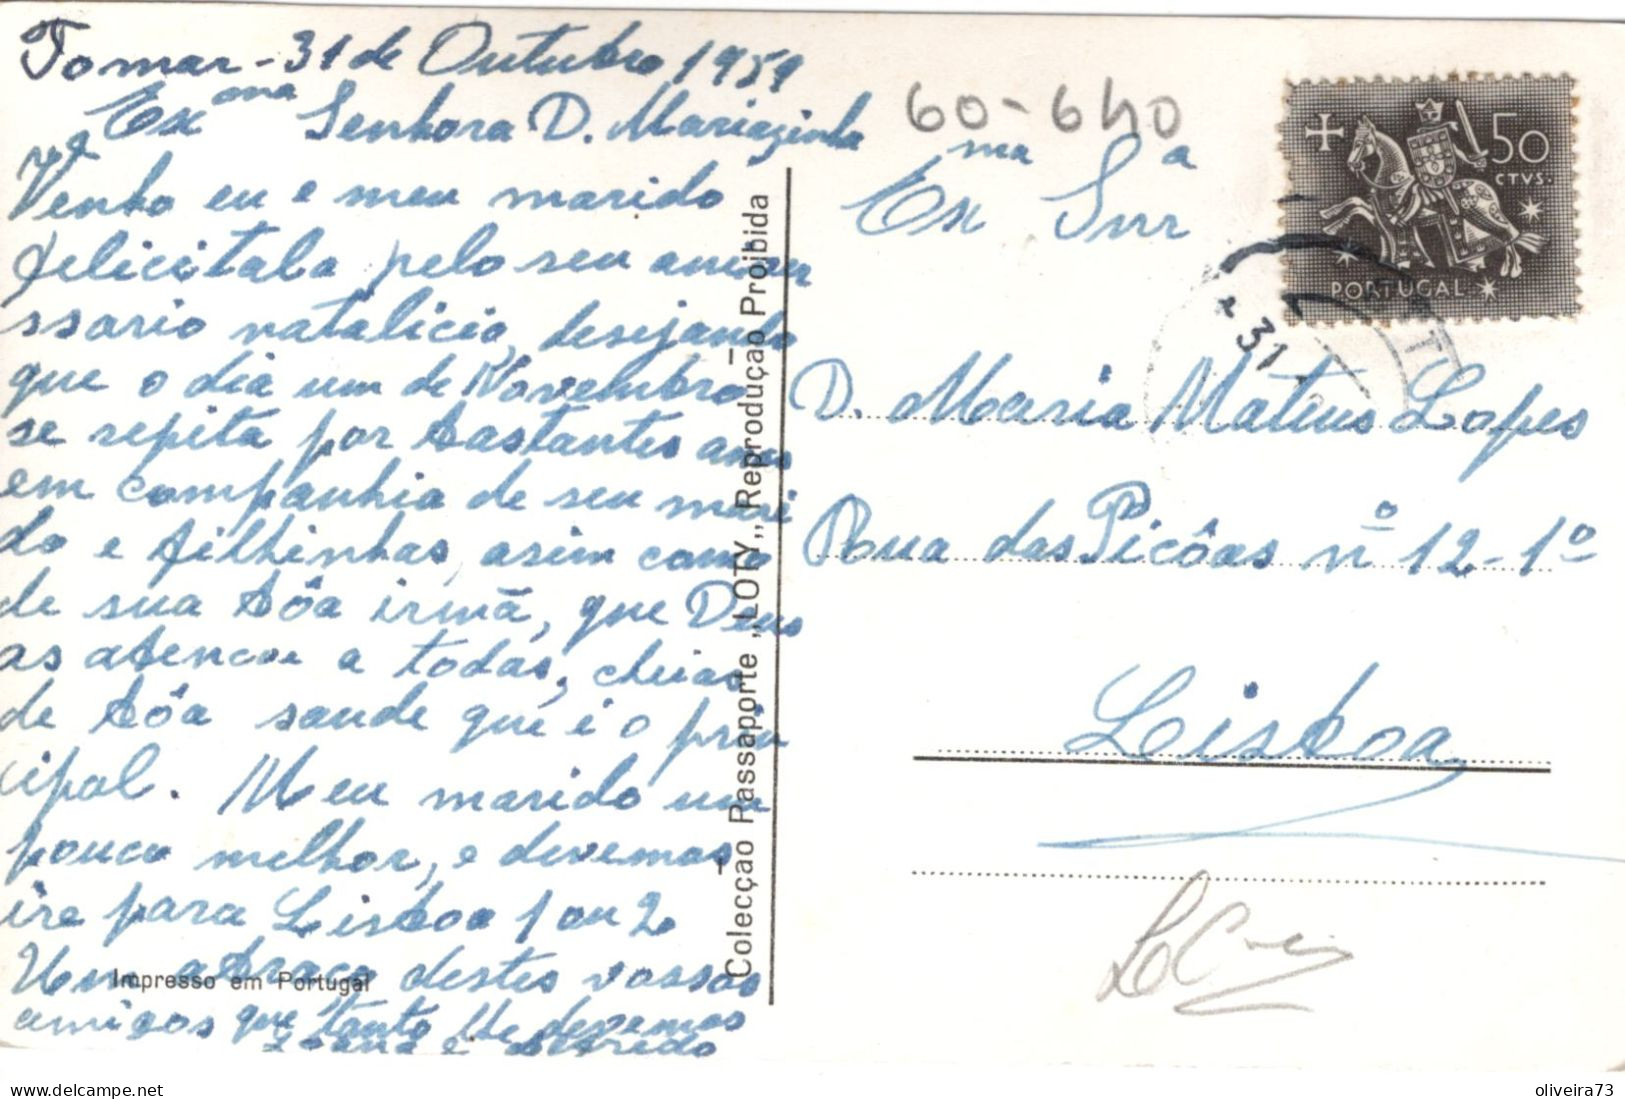 Tomar - 31 de Outubro 1959
Exma Senhora D. Mariazinha
Venho eu e meu marido
felicitala pelo seu aniver
ssario natalicio, desejando
que o dia um de Novembro
se repita por bastantes anos
em companhia de seu mari
do e filhinhas, asim como
de sua bôa irmã, que Deus
as abencoe a todas, cheias
de bôa saude que é o prin
cipal. Meu marido um
pouco melhor, e devemos
ire para Lisboa 1 ou 2
Um abraço destes vossos
amigos que tanto lhe devemos
Joana e Alfredo
Impresso em Portugal
Colecção Passaporte „LOTY„ Reproduçao Proibida
60-640
50
CTVS.
PORTUGAL
31
Exma Snra
D. Maria Mateus Lopes
Rua das Picôas nº 12-1º
Lisboa
delcampe.net
oliveira73